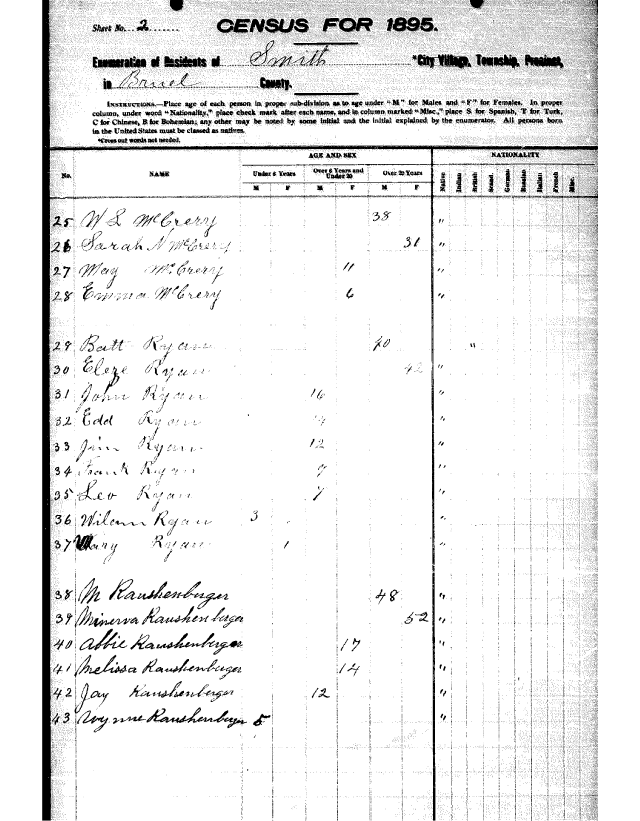 Sheet No. 2
CENSUS FOR 1895.
Enumeration of Residents of Smith *City Village, Township, Precinct,
in Bruel County.
INSTRUCTIONS.—Place age of each person in proper sub-division as to age under "M" for Males and "F" for Females. In proper
column, under word "Nationality," place check mark after each name, and in column marked "Misc," place S for Spanish, T for Turk,
C for Chinese, B for Bohemian; any other may be noted by some initial and the initial explained by the enumerator. All persons born
in the United States must be classed as natives.
*Cross out words not needed.
No. NAME AGE AND SEX NATIONALITY
Under 6 Years Over 6 Years and Under 20 Over 20 Years
M F M F M F
Native Indian British Scand. German Russian Italian French Misc.
25 W S McCrery 38 "
26 Sarah N McCrery 31 "
27 May McCrery 11 "
28 Emma McCrery 6 "
29 Batt Ryan 40 "
30 Ryan 42 "
31 John Ryan 16 "
32 Edd Ryan "
33 Jim Ryan 12 "
34 Frank Ryan 9 "
35 Leo Ryan 7 "
36 Ryan 3 "
37 Mary Ryan 1 "
38 M Raushenberger 48 "
39 Minerva Raushenberger 52 "
40 Abbie Raushenberger 17 "
41 Melissa Raushenberger 14 "
42 Jay Raushenberger 12 "
43 Wynne Raushenberger 5 "